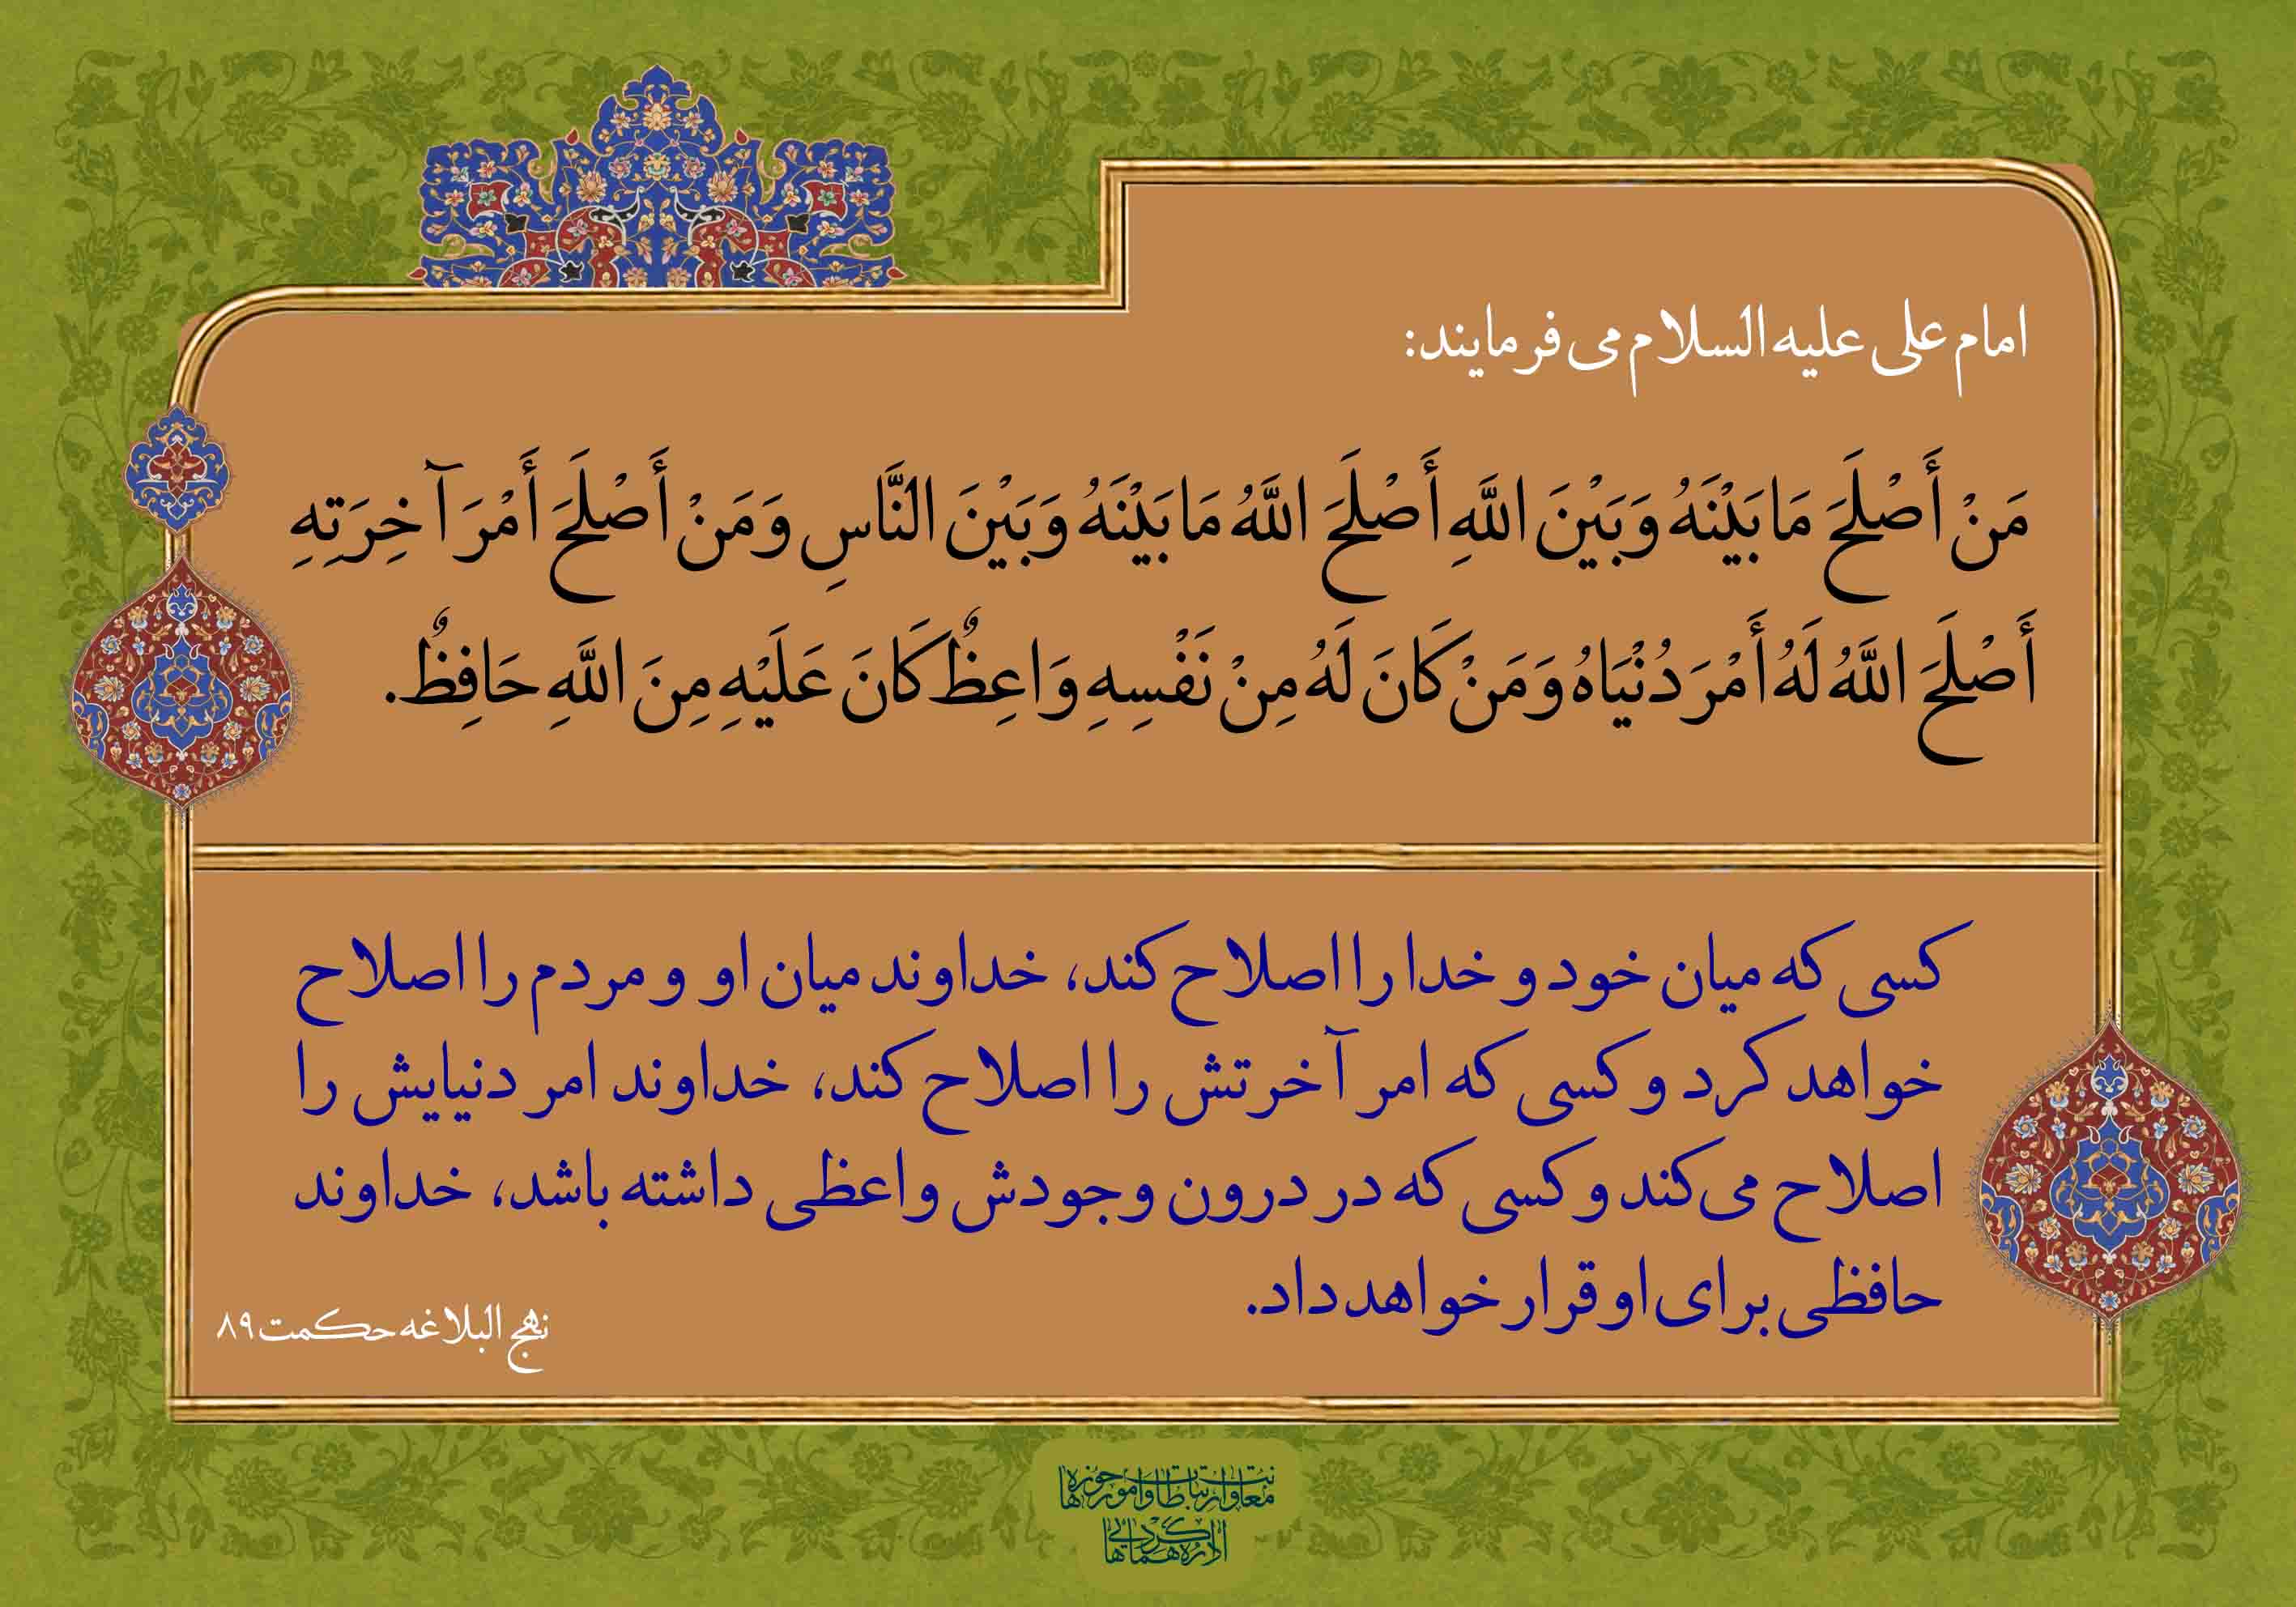 امام علی علیه السلام می فرمایند:
مَنْ أَصْلَحَ مَا بَیْنَهُ وَ بَیْنَ اللَّهِ أَصْلَحَ اللَّهُ مَا بَیْنَهُ وَ بَیْنَ النَّاسِ وَ مَنْ أَصْلَحَ أَمْرَ آخِرَتِهِ
أَصْلَحَ اللَّهُ لَهُ أَمْرَ دُنْیَاهُ وَ مَنْ کَانَ لَهُ مِنْ نَفْسِهِ وَاعِظٌ کَانَ عَلَیْهِ مِنَ اللَّهِ حَافِظٌ.
کسی که میان خود و خدا را اصلاح کند، خداوند میان او و مردم را اصلاح
خواهد کرد و کسی که امر آخرتش را اصلاح کند، خداوند امر دنیایش را
اصلاح می‌کند و کسی که در درون وجودش واعظی داشته باشد، خداوند
حافظی برای او قرار خواهد داد.
نهج البلاغه حکمت ۸۹
معاونت ارتباطات و امور حوزه ها
اداره گردهمایی ها